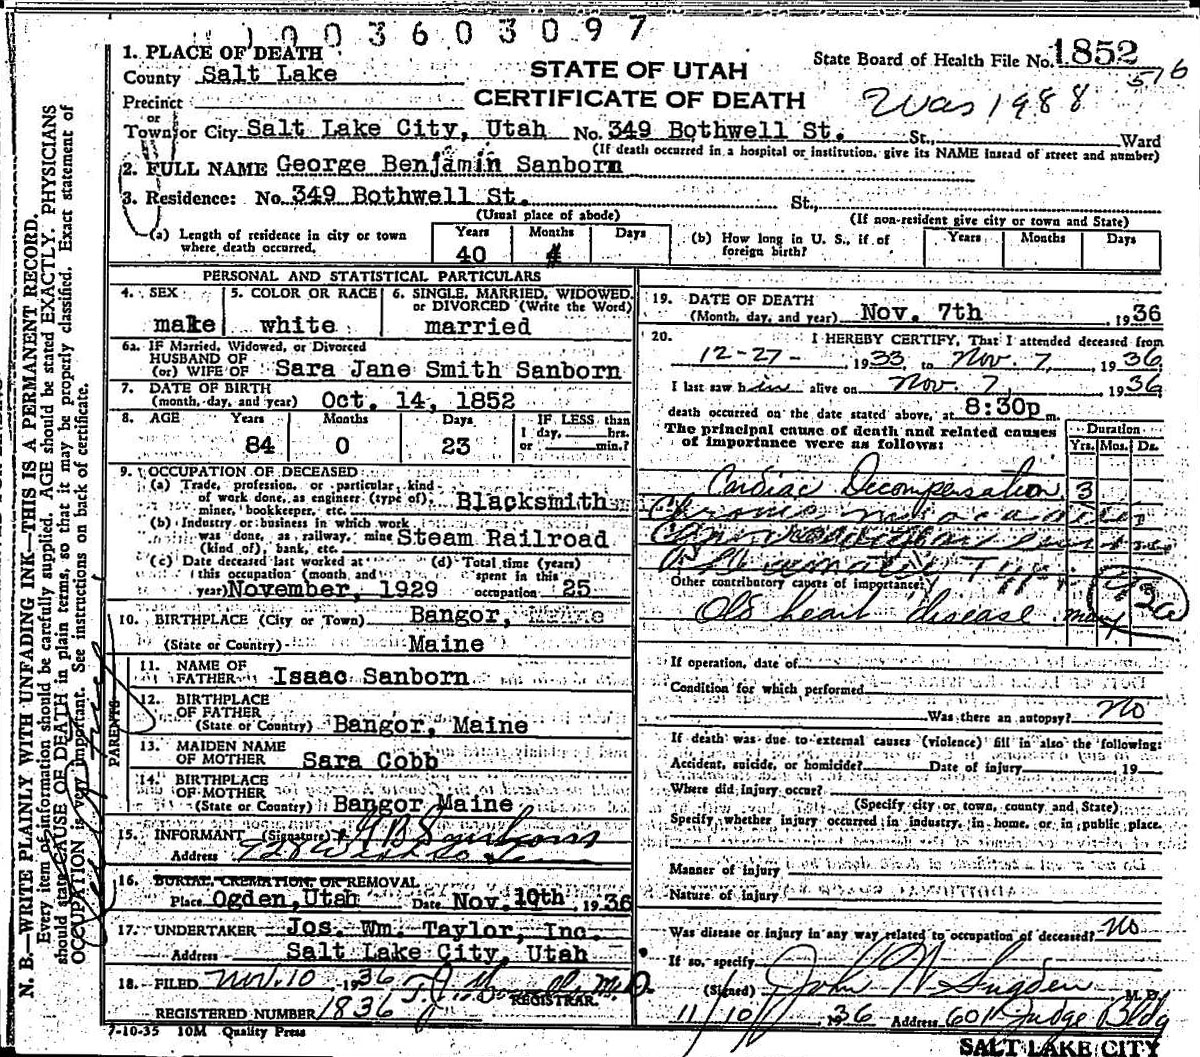 003603097
1. PLACE OF DEATH
County Salt Lake
STATE OF UTAH
State Board of Health File No. 1852
516
Precinct
CERTIFICATE OF DEATH
Was 1988
or
Town or City Salt Lake City, Utah No. 349 Bothwell St. St., Ward
(If death occurred in a hospital or institution, give its NAME instead of street and number)
2. FULL NAME George Benjamin Sanborn
3. Residence: No. 349 Bothwell St. St.,
(Usual place of abode) (If non-resident give city or town and State)
(a) Length of residence in city or town where death occurred. Years 40 Months 4 Days
(b) How long in U. S., if of foreign birth? Years Months Days
PERSONAL AND STATISTICAL PARTICULARS
4. SEX male
5. COLOR OR RACE white
6. SINGLE, MARRIED, WIDOWED, or DIVORCED (Write the Word) married
6a. IF Married, Widowed, or Divorced
HUSBAND OF
(or) WIFE OF Sara Jane Smith Sanborn
7. DATE OF BIRTH
(month, day, and year) Oct. 14, 1852
8. AGE Years 84 Months 0 Days 23 IF LESS than 1 day, hrs. or min.?
9. OCCUPATION OF DECEASED
(a) Trade, profession, or particular kind
of work done, as engineer (type of),
miner, bookkeeper, etc. Blacksmith
(b) Industry or business in which work
was done, as railway, mine
(kind of), bank, etc. Steam Railroad
(c) Date deceased last worked at this occupation (month and year) November, 1929
(d) Total time (years) spent in this occupation 25
10. BIRTHPLACE (City or Town) Bangor,
(State or Country) Maine
PARENTS
11. NAME OF
FATHER Isaac Sanborn
12. BIRTHPLACE
OF FATHER
(State or Country) Bangor, Maine
13. MAIDEN NAME
OF MOTHER Sara Cobb
14. BIRTHPLACE
OF MOTHER
(State or Country) Bangor Maine
15. INFORMANT (Signature)
Address
16. BURIAL, CREMATION, OR REMOVAL
Place Ogden, Utah Date Nov. 10th, 1936
17. UNDERTAKER Jos. Wm. Taylor, Inc.
Address Salt Lake City, Utah
18. FILED Nov. 10 1936
REGISTRAR.
REGISTERED NUMBER 1836
7-10-35 10M Quality Press
19. DATE OF DEATH
(Month, day, and year) Nov. 7th, 1936
20. I HEREBY CERTIFY, That I attended deceased from
12-27-, 1933, to Nov. 7, 1936
I last saw him alive on Nov. 7, 1936
death occurred on the date stated above, at 8:30p m.
The principal cause of death and related causes
of importance were as follows:
Duration
Yrs. Mos. Ds.
Cardiac Decompensation 3
Chronic
Other contributory causes of importance:
Old heart disease many
If operation, date of
Condition for which performed
Was there an autopsy? no
If death was due to external causes (violence) fill in also the following:
Accident, suicide, or homicide? Date of injury, 19
Where did injury occur?
(Specify city or town, county and State)
Specify whether injury occurred in industry, in home, or in public place.
Manner of injury
Nature of injury
Was disease or injury in any way related to occupation of deceased? No
If so, specify
(Signed) John W Sugden M. D.
11/10, 1936 Address 601 Judge Bldg
SALT LAKE CITY
N. B.—WRITE PLAINLY WITH UNFADING INK—THIS IS A PERMANENT RECORD.
Every item of information should be carefully supplied. AGE should be stated EXACTLY. PHYSICIANS
should state CAUSE OF DEATH in plain terms, so that it may be properly classified. Exact statement of
OCCUPATION is very important. See instructions on back of certificate.